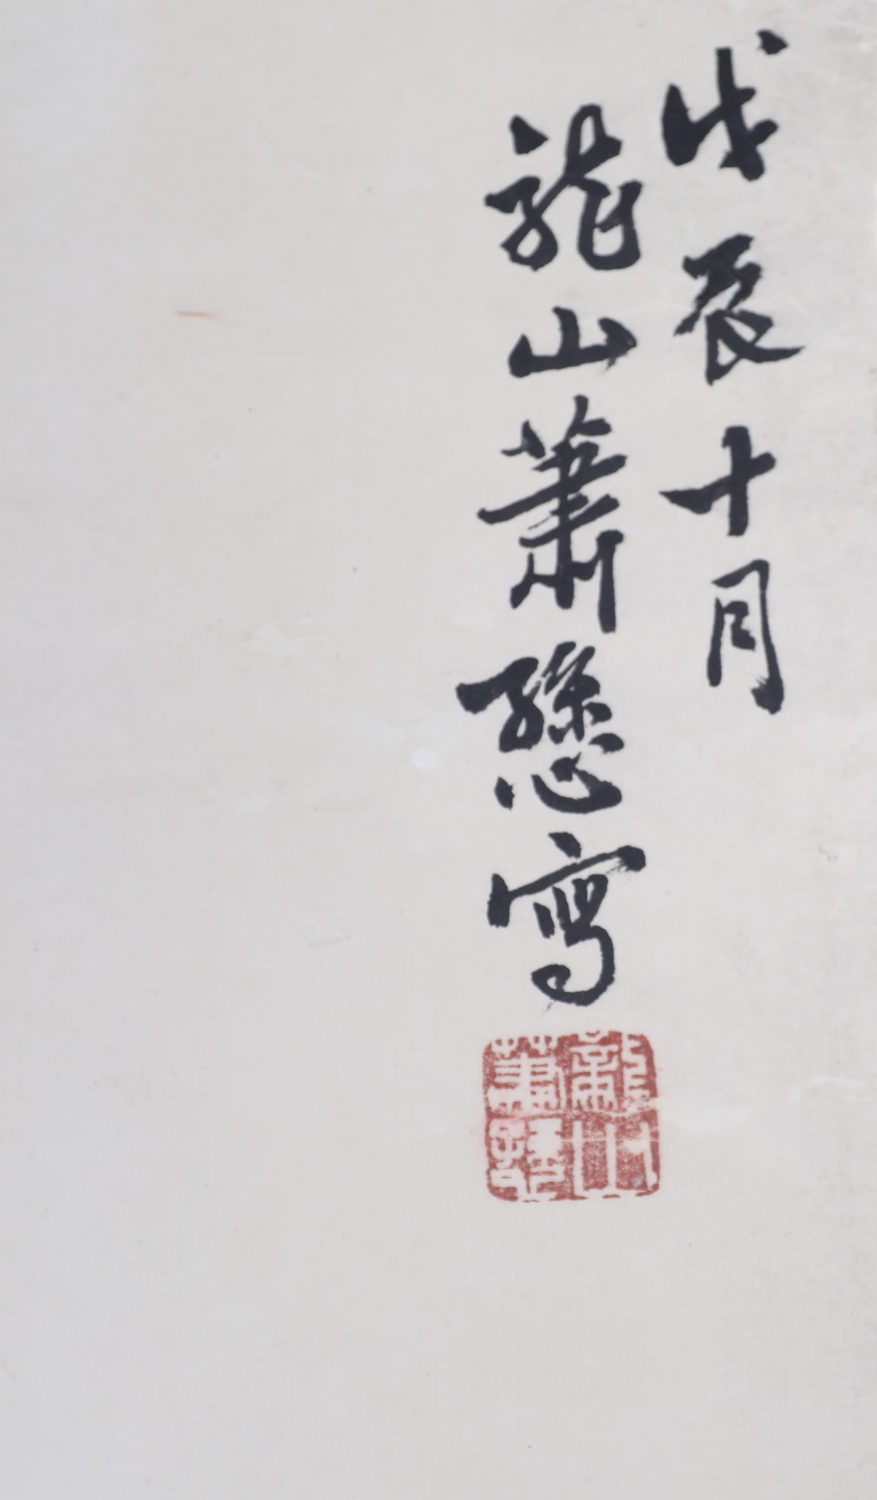 戊辰十月
龍山蕭愻寫
龍山
蕭愻